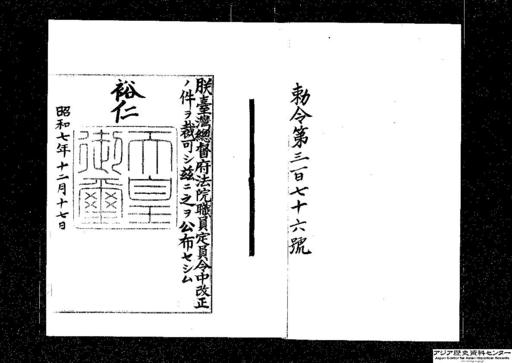 勅令第三百七十六號
朕臺灣總督府法院職員定員令中改正
ノ件ヲ裁可シ茲ニ之ヲ公布セシム
裕仁
天皇
御璽
昭和七年十二月十七日
アジア歴史資料センター
Japan Center for Asian Historical Records